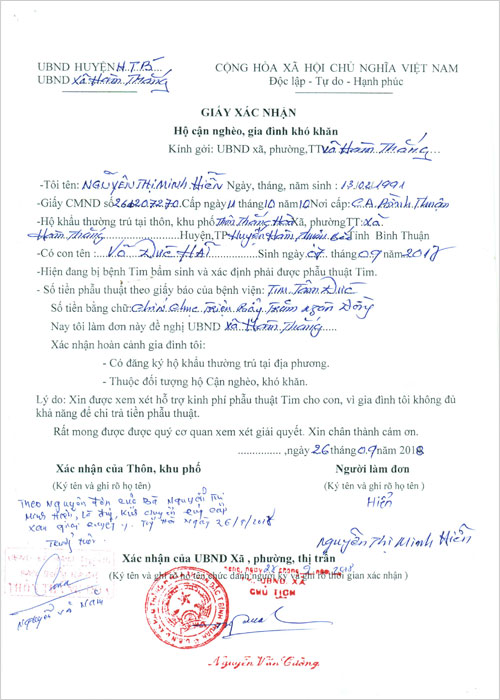 UBND HUYỆN H.T.B...
UBND xã Hàm Thắng
CỘNG HÒA XÃ HỘI CHỦ NGHĨA VIỆT NAM
Độc lập - Tự do - Hạnh phúc
GIẤY XÁC NHẬN
Hộ cận nghèo, gia đình khó khăn
Kính gởi: UBND xã, phường,TT xã Hàm Thắng...
-Tôi tên: NGUYỄN THỊ MINH HIỀN Ngày, tháng, năm sinh : 13/02/1991
-Giấy CMND số 261207270.Cấp ngày 11 tháng 10 năm 10 Nơi cấp: C.A Bình Thuận
-Hộ khẩu thường trú tại thôn, khu phố Thôn Thắng Hoà Xã, phường TT: xã
Hàm Thắng..............Huyện,TP Huyện Hàm Thuận Bắc Tỉnh Bình Thuận
-Có con tên : Võ ĐỨC HẢI..............Sinh ngày 07. tháng 09 năm 2018
-Hiện đang bị bệnh Tim bẩm sinh và xác định phải được phẫu thuật Tim.
- Số tiền phẫu thuật theo giấy báo của bệnh viện: TIM TÂM ĐỨC
Số tiền bằng chữ: Chín Chục Triệu Bảy Trăm Ngàn Đồng
Nay tôi làm đơn này đề nghị UBND xã Hàm Thắng.....
Xác nhận hoàn cảnh gia đình tôi:
- Có đăng ký hộ khẩu thường trú tại địa phương.
- Thuộc đối tượng hộ Cận nghèo, khó khăn.
Lý do: Xin được xem xét hỗ trợ kinh phí phẫu thuật Tim cho con, vì gia đình tôi không đủ
khả năng để chi trả tiền phẫu thuật.
Rất mong được được quý cơ quan xem xét giải quyết. Xin chân thành cảm ơn.
..............., ngày 26 tháng 09 năm 2018
Xác nhận của Thôn, khu phố
Người làm đơn
(Ký tên và ghi rõ họ tên)
(Ký tên và ghi rõ họ tên )
Theo nguyện đơn của Bà Nguyễn Thị
Minh Hiền,
ngày 26/9/2018
Hiền
Nguyễn Thị Minh Hiền
Xác nhận của UBND Xã , phường, thị trấn
(Ký tên và ghi rõ họ tên chức danh người ký và ghi rõ thời gian xác nhận )
UBND XÃ
CHỦ TỊCH
Nguyễn Văn Cường